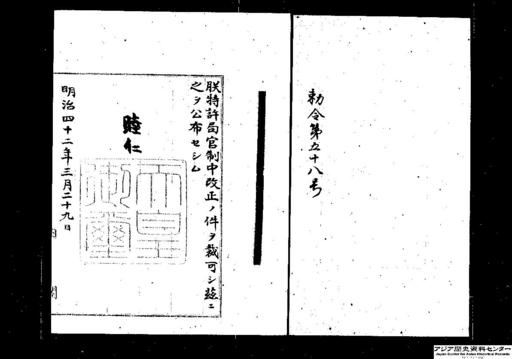 勅令第五十八号
朕特許局官制中改正ノ件ヲ裁可シ茲ニ
之ヲ公布セシム
睦仁
天皇
御璽
明治四十二年三月二十九日
内閣
アジア歴史資料センター
Japan Center for Asian Historical Records